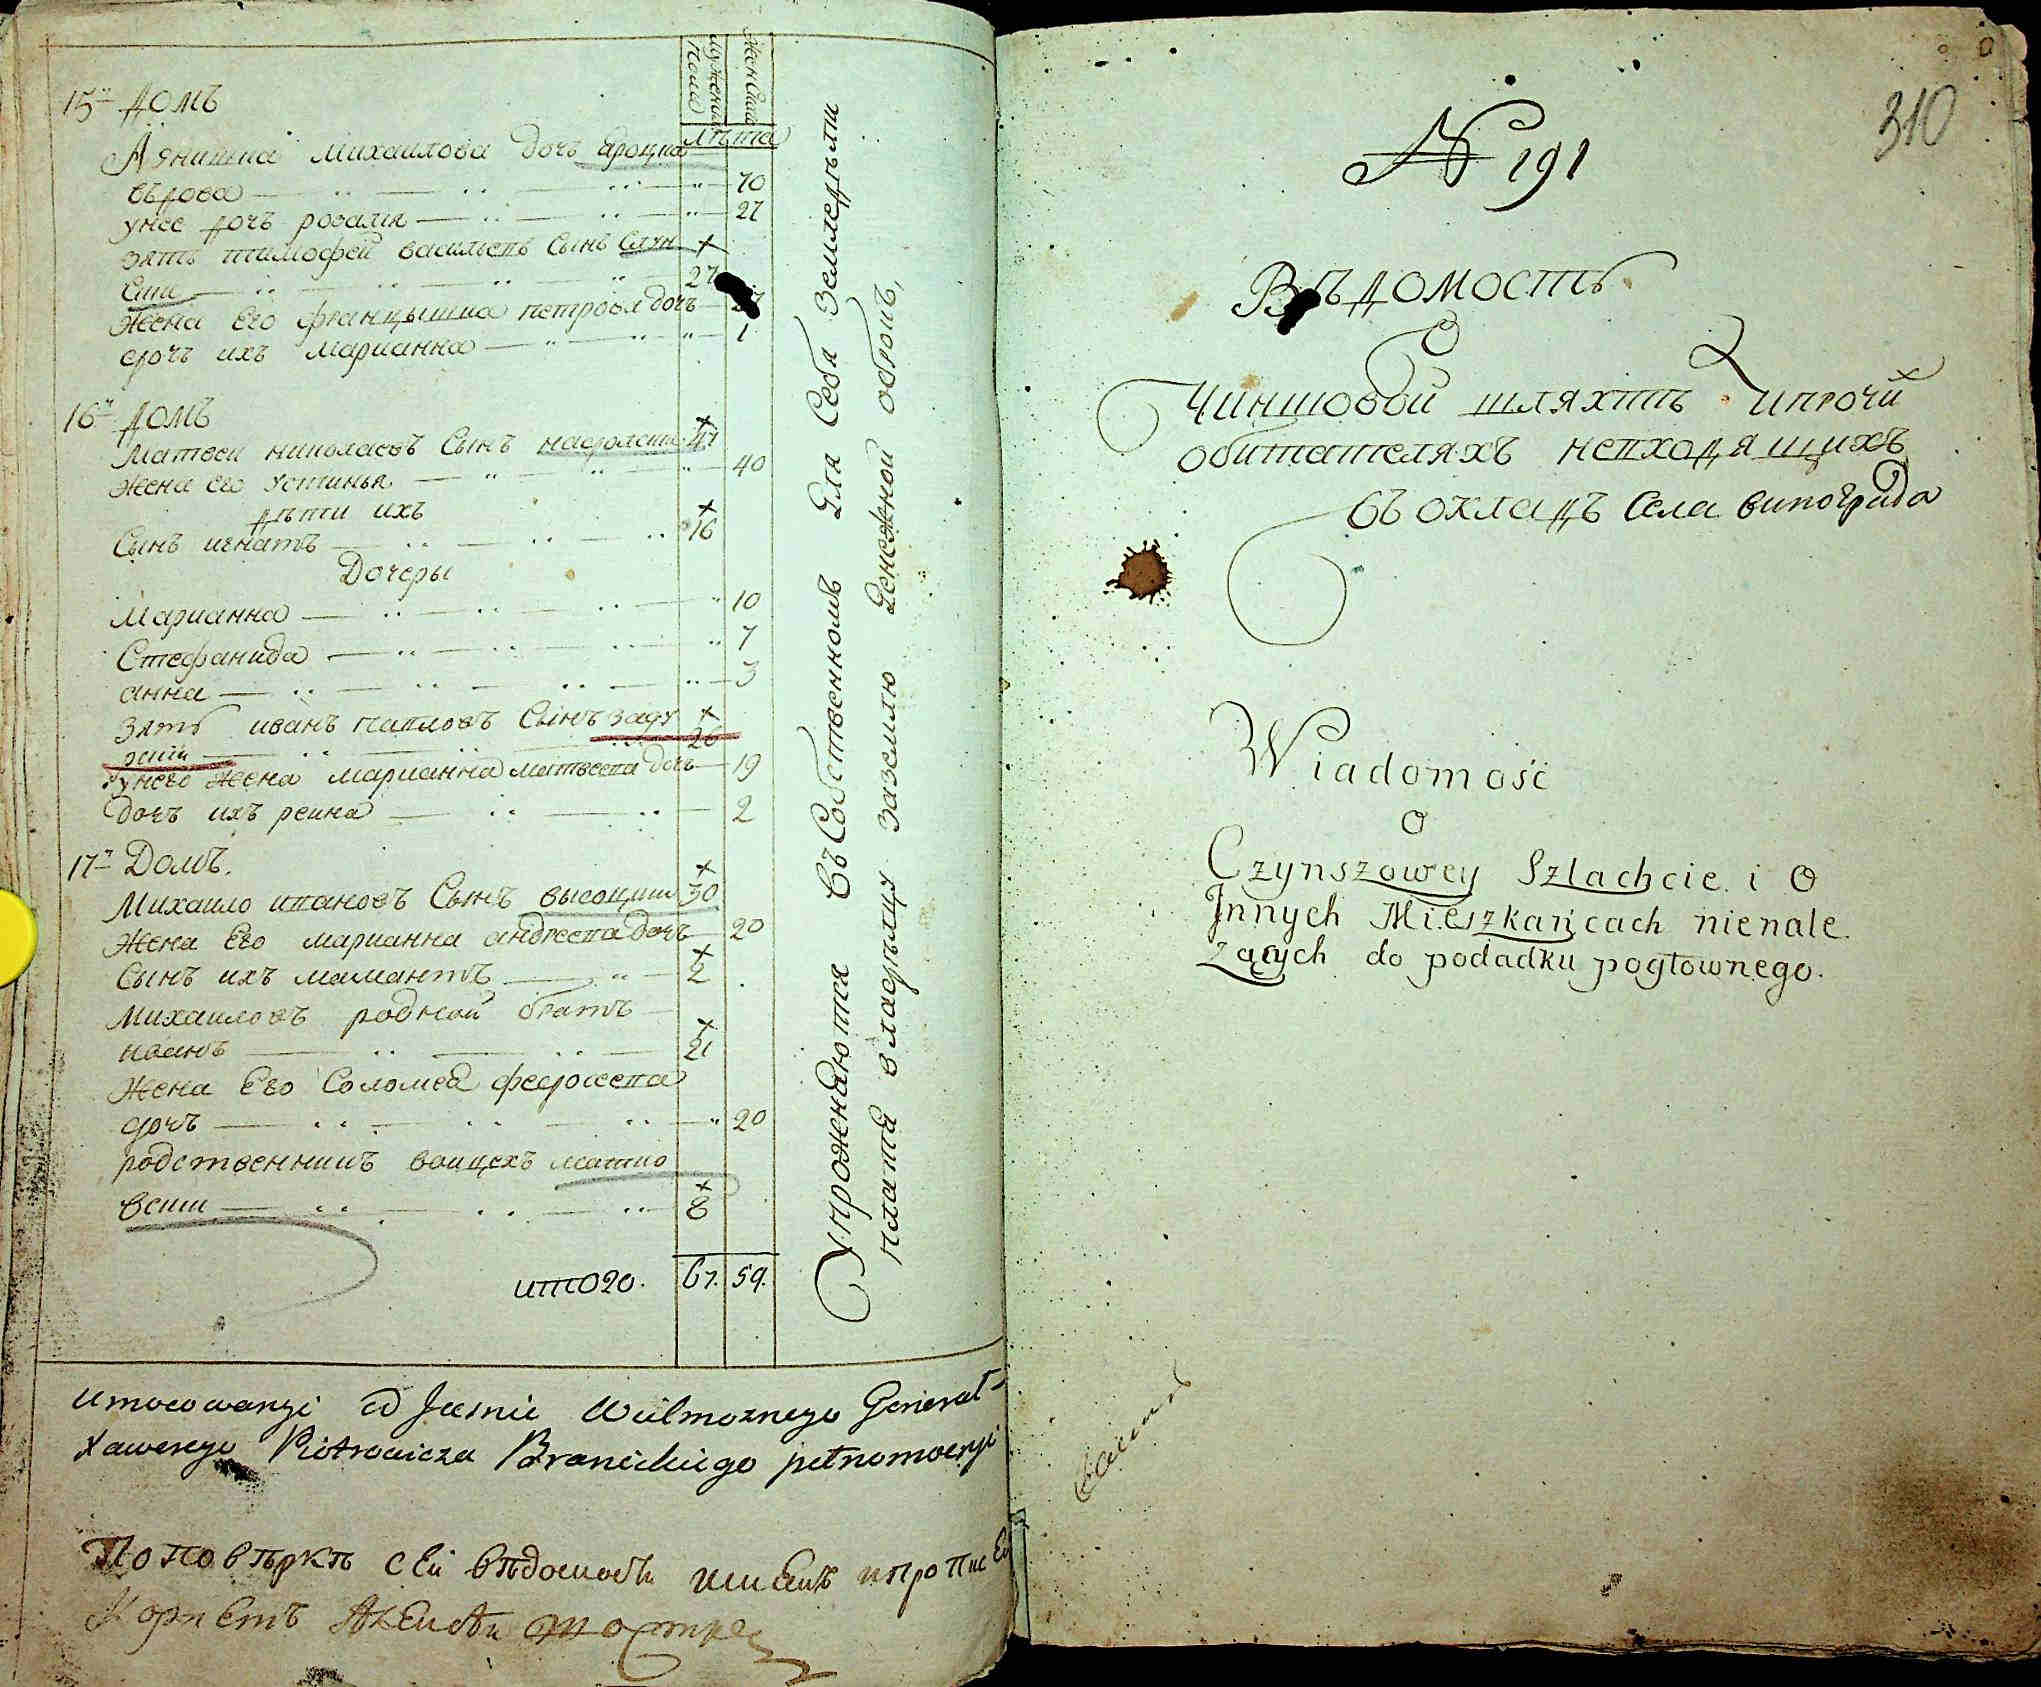 мужеска
пола
женска
лѣта
15й домъ
Агнишка михаилова дочь
вдова 70
унее дочь розалия 27
зять тимофей васильевъ сынъ
27
жена его францышка петрова дочь
дочь ихъ марианна 1
16й домъ
матвеи николаевъ сынъ 41
жена его устинья 40
дѣти ихъ
сынъ игнатъ 16
Дочеры
марианна 10
Стефанида 7
анна 3
зять иванъ павловъ сынъ заду
26
унего жена марианна матвеева дочь 19
дочь ихъ реина 2
17й Домъ.
Михаило ивановъ Сынъ высоцкии 30
жена Его марианна андреева дочь 20
Сынъ ихъ мамантъ 2
михаиловъ родной братъ
иванъ 21
жена Его Соломея федосеева
дочь 20
родственникъ воицехъ матко
вски 8
итого. 67. 59.
Упрожняются въ Собственномъ для Себя земледѣлии
платя владѣлцу заземлю денежной оброкъ,
Umocowanyi od Jasnie Wielmoznego Generał
Xawerego Piotrowicza Branickiego pełnomocnyi
По повѣркѣ сеи вѣдомость
Корнетъ
310
№ 191
Вѣдомость
О
Чиншовой шляхтѣ ипрочй
обитателяхъ невходящихъ
въ окладъ Села винограда
Wiadomość
O
Czynszowey Szlachcie i O
Innych Mieszkańcach nienale
żących do podadku pogłownego.